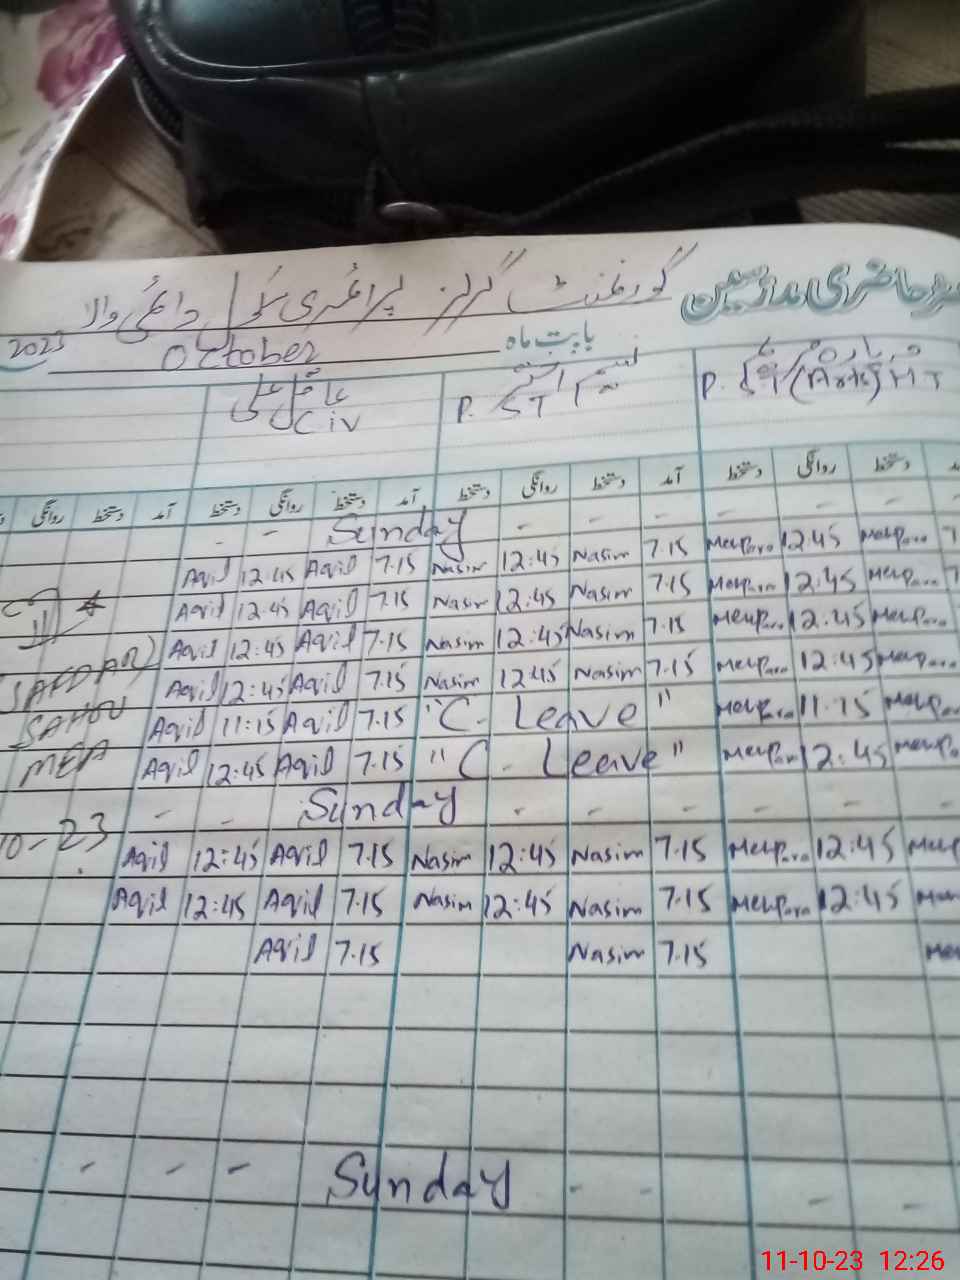 گورنمنٹ گرلز پرائمری سکول والا حاضری مدرسین
2023 October بابت ماہ
عاقل علی نسیم اختر
Civ P.ST P.ST (Arts) HT
روانگی دستخط آمد دستخط روانگی دستخط آمد دستخط روانگی دستخط آمد دستخط روانگی دستخط
- - Sunday - - - - - -
Aqil 12:45 Aqil 7.15 Nasim 12:45 Nasim 7.15 Mehparo 12:45 Mehparo 7
Aqil 12:45 Aqil 7.15 Nasim 12:45 Nasim 7.15 Mehparo 12:45 Mehparo 7
Aqil 12:45 Aqil 7.15 Nasim 12:45 Nasim 7.15 Mehparo 12:45 Mehparo
(SAFDAR) Aqil 12:45 Aqil 7.15 Nasim 12:45 Nasim 7.15 Mehparo 12:45 Mehparo
SAHOO Aqil 11:15 Aqil 7.15 "C. Leave" Mehparo 11.15 Mehparo
MEA Aqil 12:45 Aqil 7.15 "C. Leave" Mehparo 12:45 Mehparo
- - Sunday - - - - - -
10-23 Aqil 12:45 Aqil 7.15 Nasim 12:45 Nasim 7.15 Mehparo 12:45 Meh
Aqil 12:45 Aqil 7.15 Nasim 12:45 Nasim 7.15 Mehparo 12:45
Aqil 7.15 Nasim 7.15
- - - Sunday - - - -
11-10-23 12:26